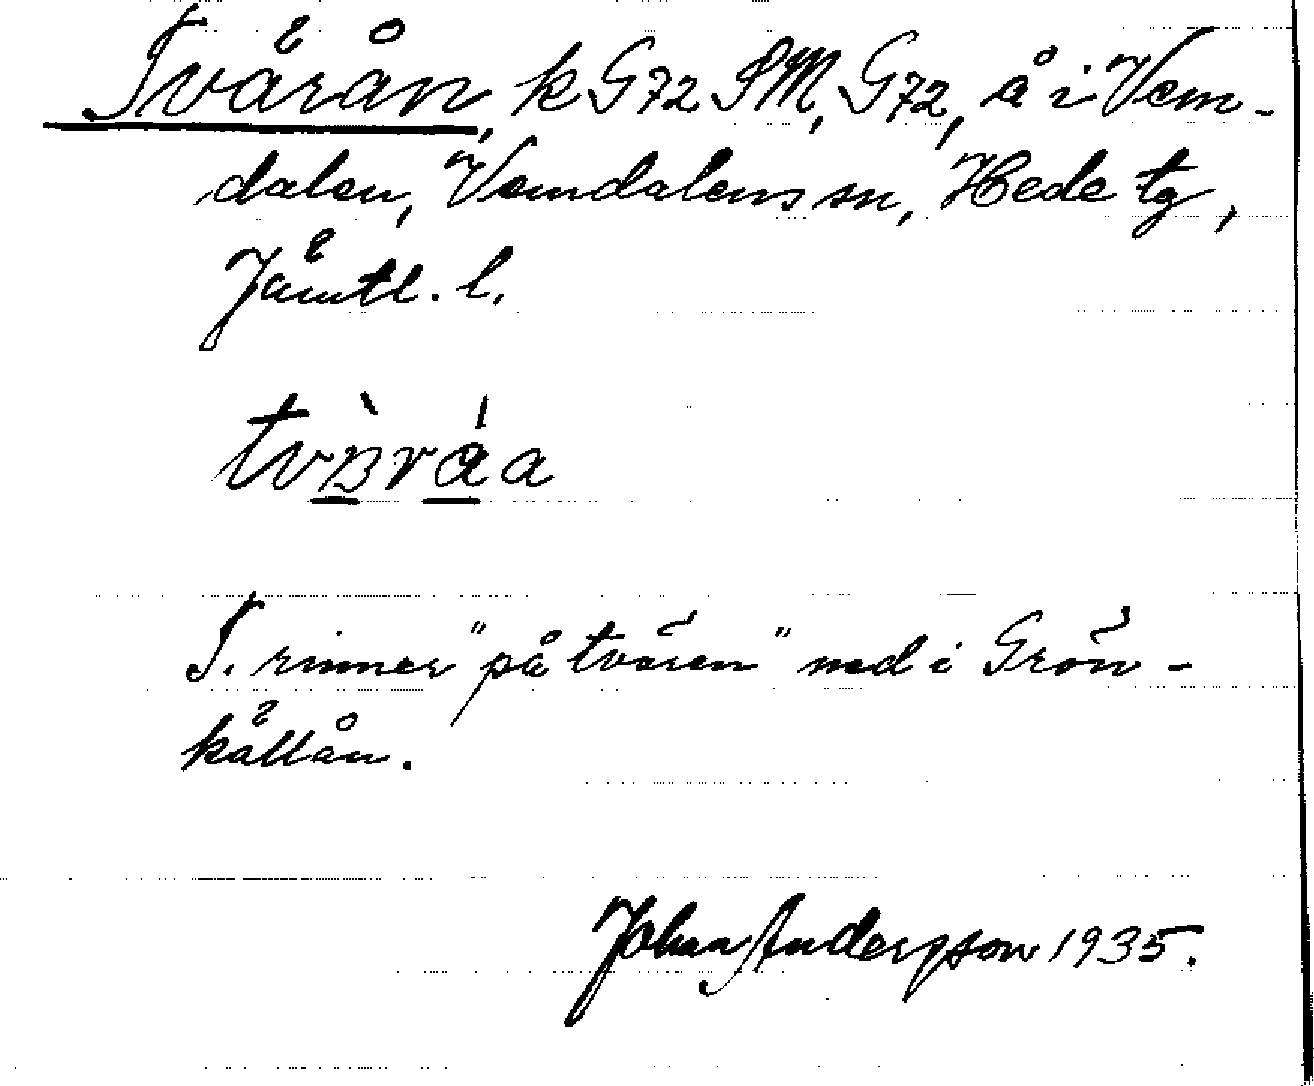 Tvärån, k G72 SM, G72, å i Vem-
dalen, Vemdalens sn, Hede tg,
Jämtl. l.
T. rinner "på tvären" ned i Grön-
källån.
Johan Andersson 1935.